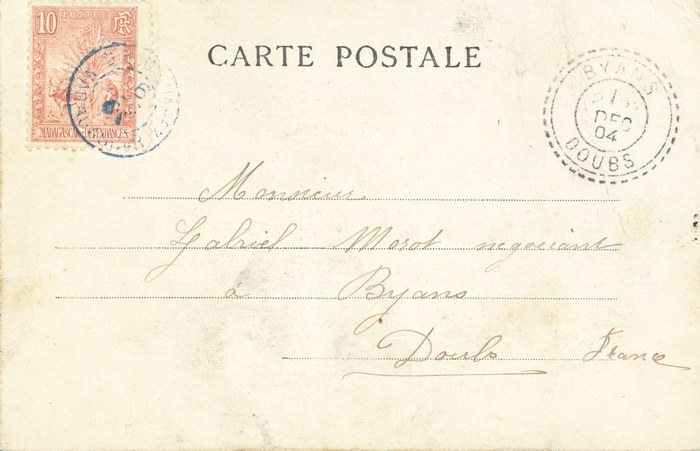 10
POSTES
RF
MADAGASCAR ET DÉPENDANCES
CARTE POSTALE
BYANS
DEC
04
DOUBS
Monsieur
Gabriel Morot negociant
à Byans
Doubs France